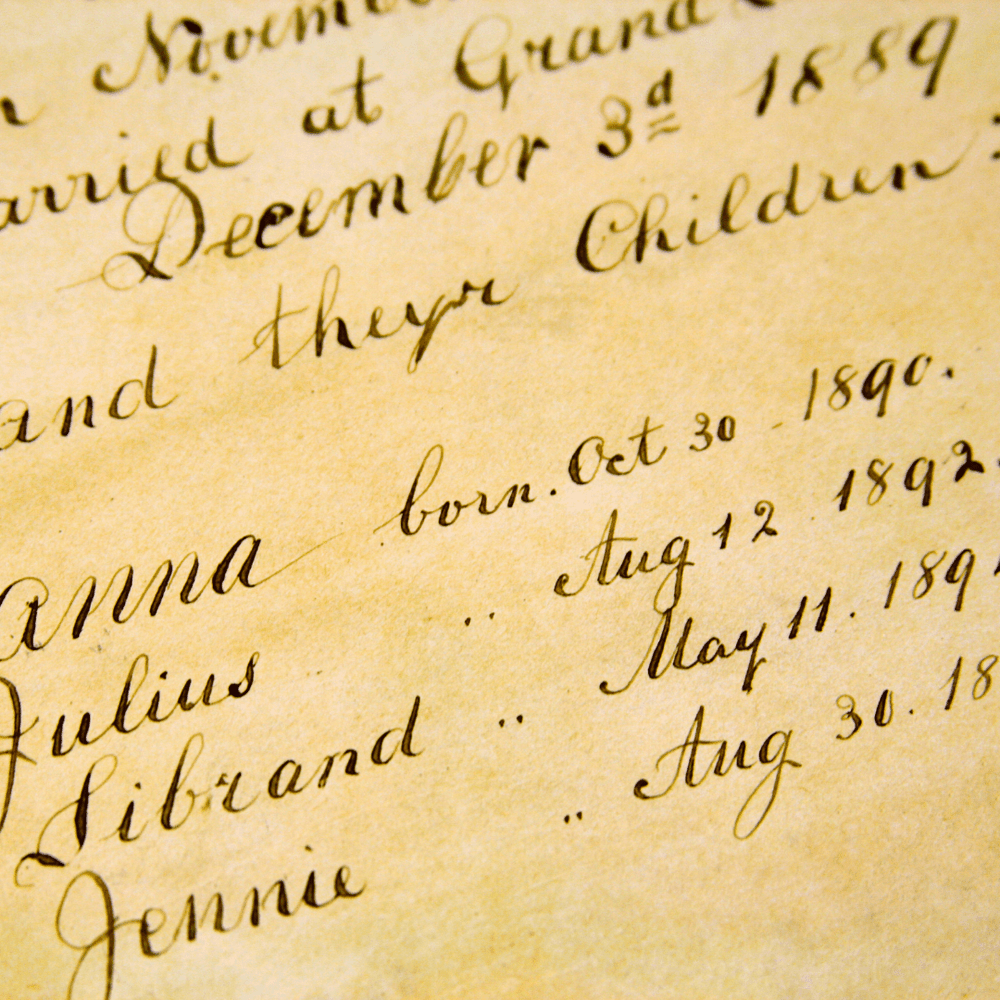 n Novem
arried at Grand
December 3d 1889
and theyr Children :
anna born. Oct 30 - 1890.
Julius " Aug 12 1892.
Sibrand " May 11. 189
Jennie " Aug 30. 18